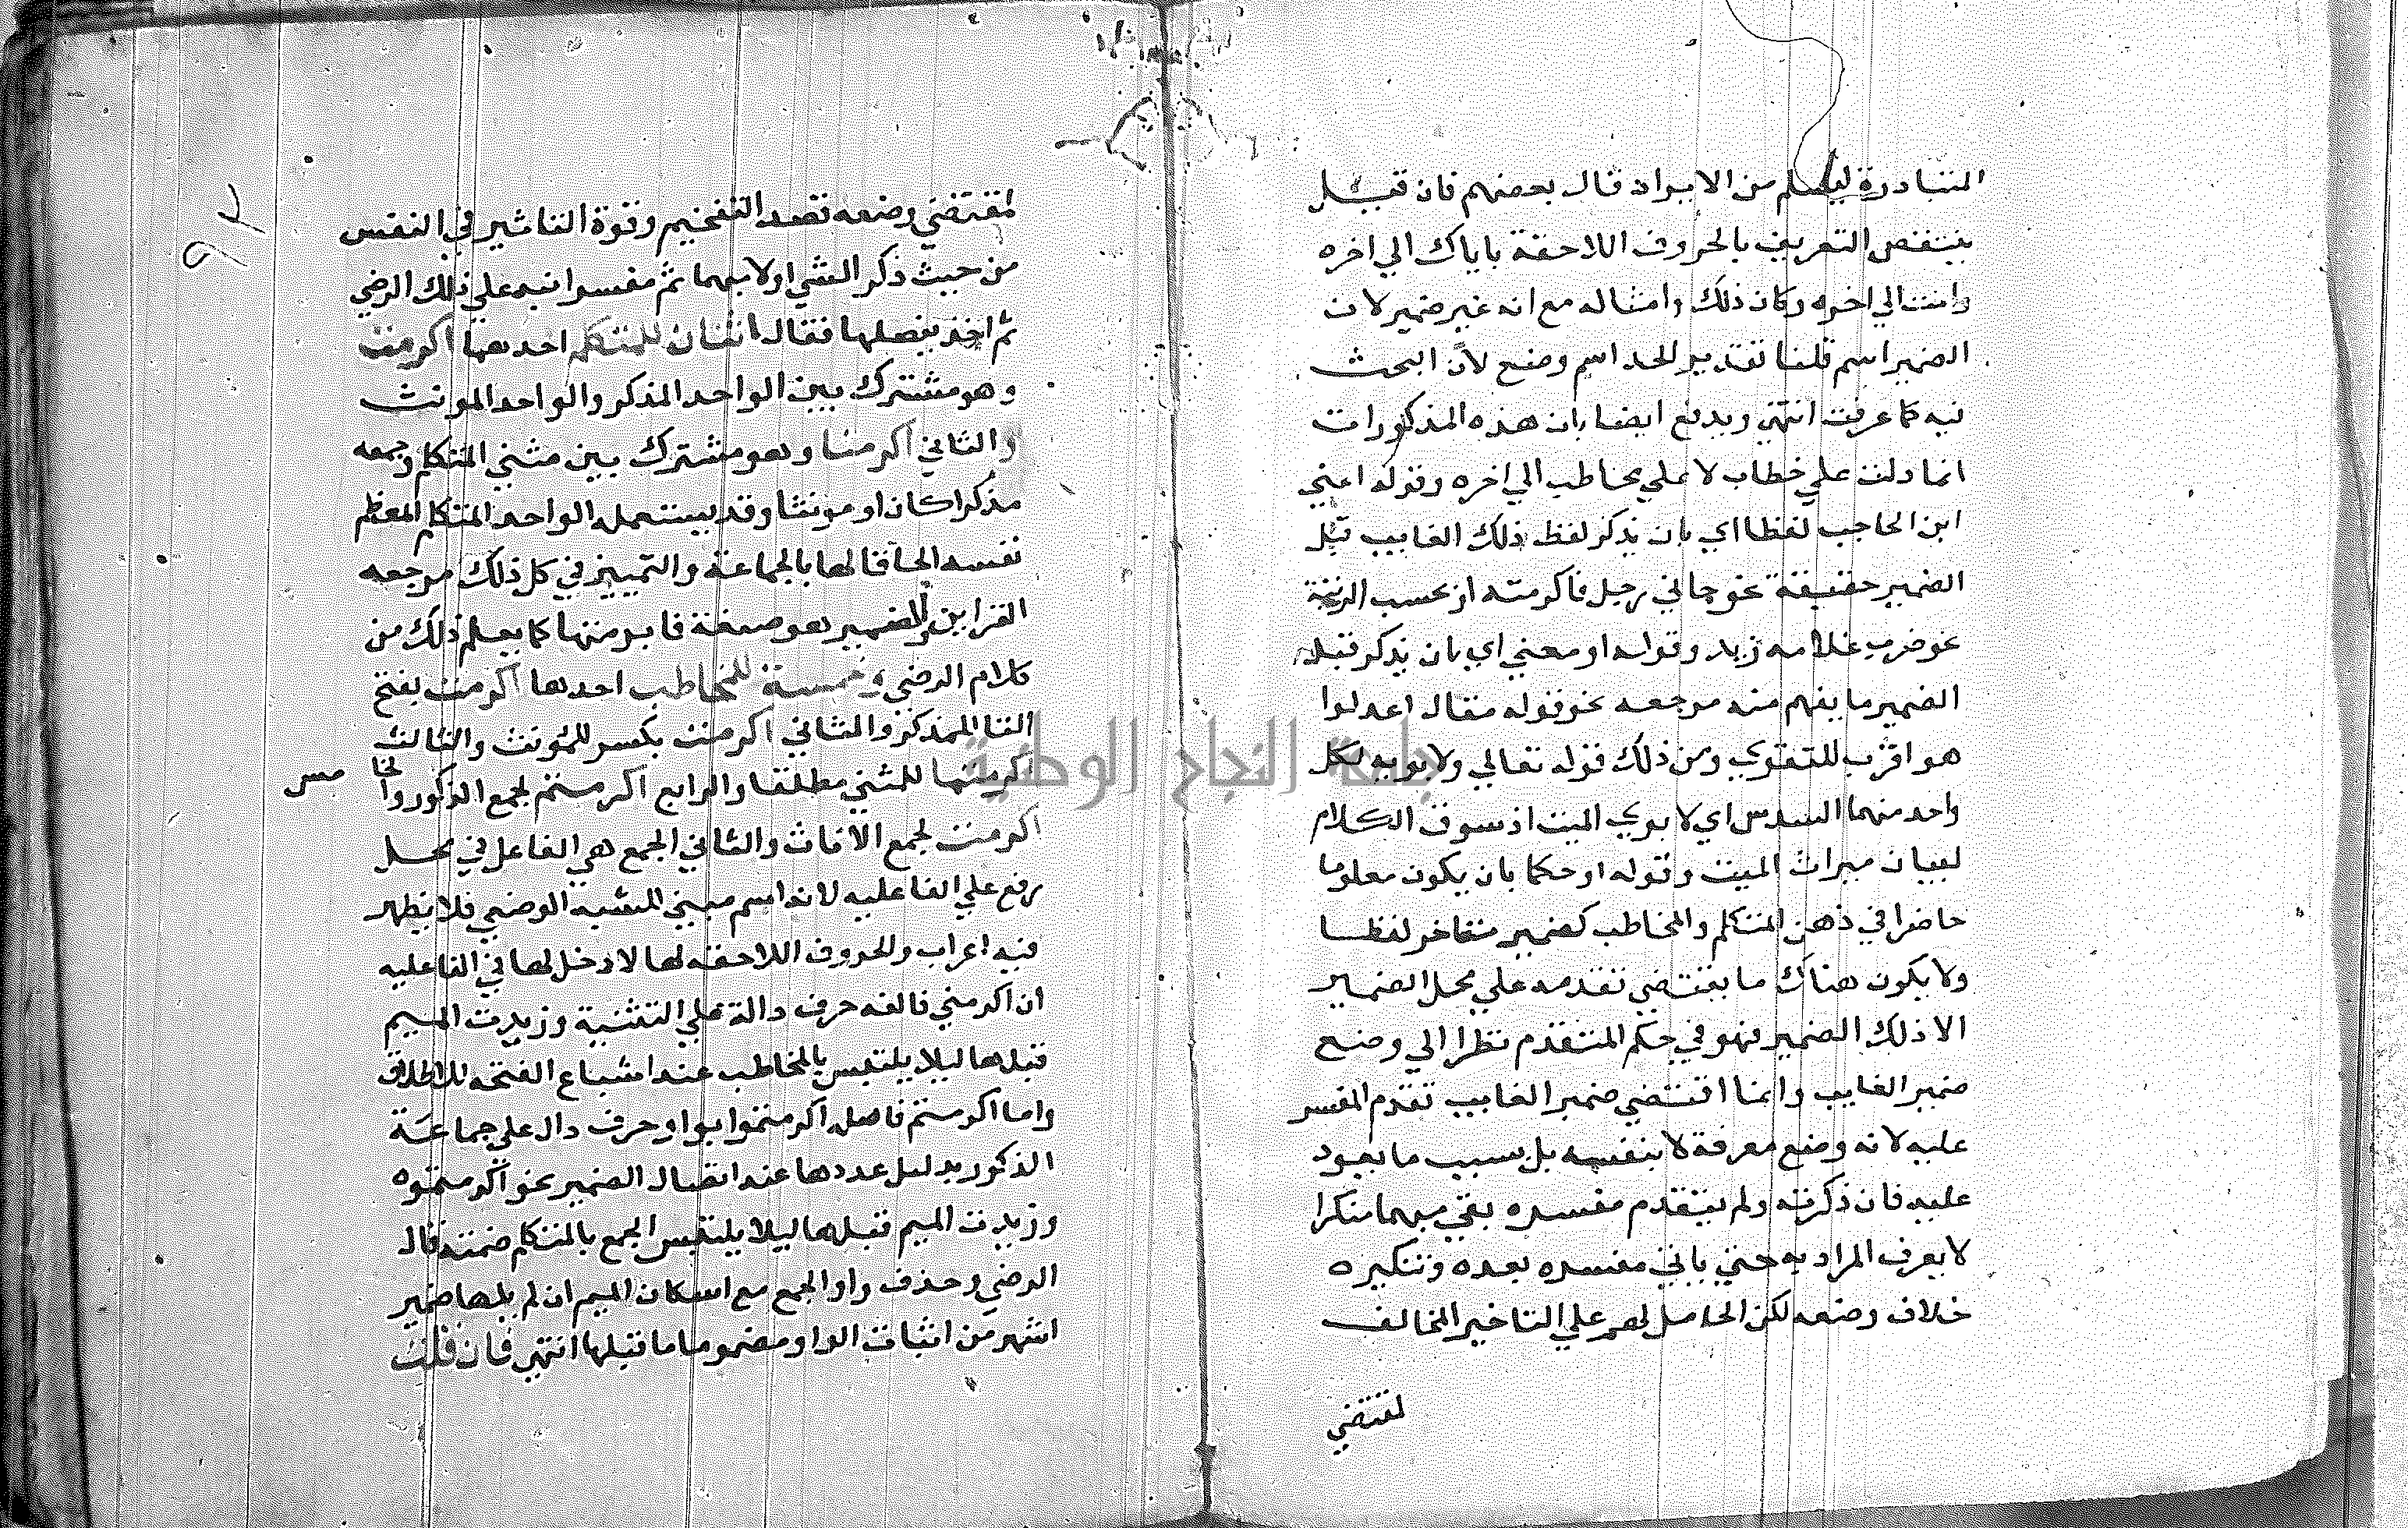 المتبادرة ليسلم من الايراد قال بعضهم فان قيل
ينتقض التعريف بالحروف اللاحقة باياك الي اخره
وانت الي اخره وكان ذلك وامثاله مع انه غير ضمير لان
الضمير اسم قلنا تقدير الحد اسم وضع لأن البحث
فيه كما عرفت انتهي ويدفع ايضا بان هذه المذكورات
انما دلت علي خطاب لا علي مخاطب الي اخره وقوله اعني
ابن الحاجب لفظا اي بان يذكر لفظ ذلك الغايب قبل
الضمير حقيقة نحو جاني رجل فاكرمته او بحسب الرتبة
نحو ضرب غلامه زيد وقوله او معني اي بان يذكر قبل
الضمير ما يفهم منه مرجعه نحو قوله مقال اعدلوا
هو اقرب للتقوي ومن ذلك قوله تعالي ولابويه لكل
واحد منهما السدس اي لابوي الميت اذ سوق الكلام
لبيان ميراث الميت وقوله او حكما بان يكون معلوما
حاضرا في ذهن المتكلم والمخاطب كضمير متاخر لفظا
ولا يكون هناك ما يقتضي تقدمه علي محل الضمير
الا ذلك الضمير فهو في حكم المتقدم نظرا الي وضع
ضمير الغايب وانما اقتضي ضمير الغايب تقدم المفسر
عليه لانه وضع معرفة لا بنفسه بل بسبب ما يعود
عليه فان ذكرته ولم يتقدم مفسره بقي مبهما منكرا
لا يعرف المراد به حتي ياتي مفسره بعده وتنكيره
خلاف وضعه لكن الحامل لهم علي التاخير المخالف
لمقتضي
٩٢
لمقتضي وضعه قصد التفخيم وقوة التاثير في النفس
من حيث ذكر الشي اولا مبهما ثم مفسرا نبه علي ذلك الرضي
ثم اخذ يفصلها فقال اثنان للمتكلم احدهما اكرمت
وهو مشترك بين الواحد المذكر والواحد المونث
والثاني اكرمنا وهو مشترك بين مثني المتكلم وجمعه
مذكرا كان او مونثا وقد يستعمله الواحد المتكلم المعظم
نفسه الحاقا لها بالجماعة والتمييز في كل ذلك مرجعه
القراين والضمير هو كما يعلم ذلك من
كلام الرضي وخمسة للمخاطب احدها اكرمت بفتح
التا للمذكر والثاني اكرمت بكسر للمونث والثالث
اكرمتما للمثني مطلقا والرابع اكرمتم لجمع الذكور والخا مس
اكرمتن لجمع الاناث والتا في الجمع هي الفاعل في محل
رفع علي الفاعليه لانه اسم مبني للشبه الوضعي فلا يظهر
فيه اعراب والحروف اللاحقه لها لا دخل لها في الفاعليه
اكرمتما فالفه حرف دالة علي التثنية وزيدت الميم
قبلها ليلا يلتبس بالمخاطب عند اشباع الفتحه للاطلاق
واما اكرمتم فاصله اكرمتموا بواو حرف دال علي جماعة
الذكور بدليل عددها عند اتصال الضمير نحو اكرمتموه
وزيدت الميم قبلها ليلا يلتبس الجمع بالمتكلم ضمته قال
الرضي وحذف واو الجمع مع اسكان الميم ان لم يلها ضمير
اشهر من اثبات الواو مضموما ما قبلها انتهي فان قلت
جامعة النجاح الوطنية